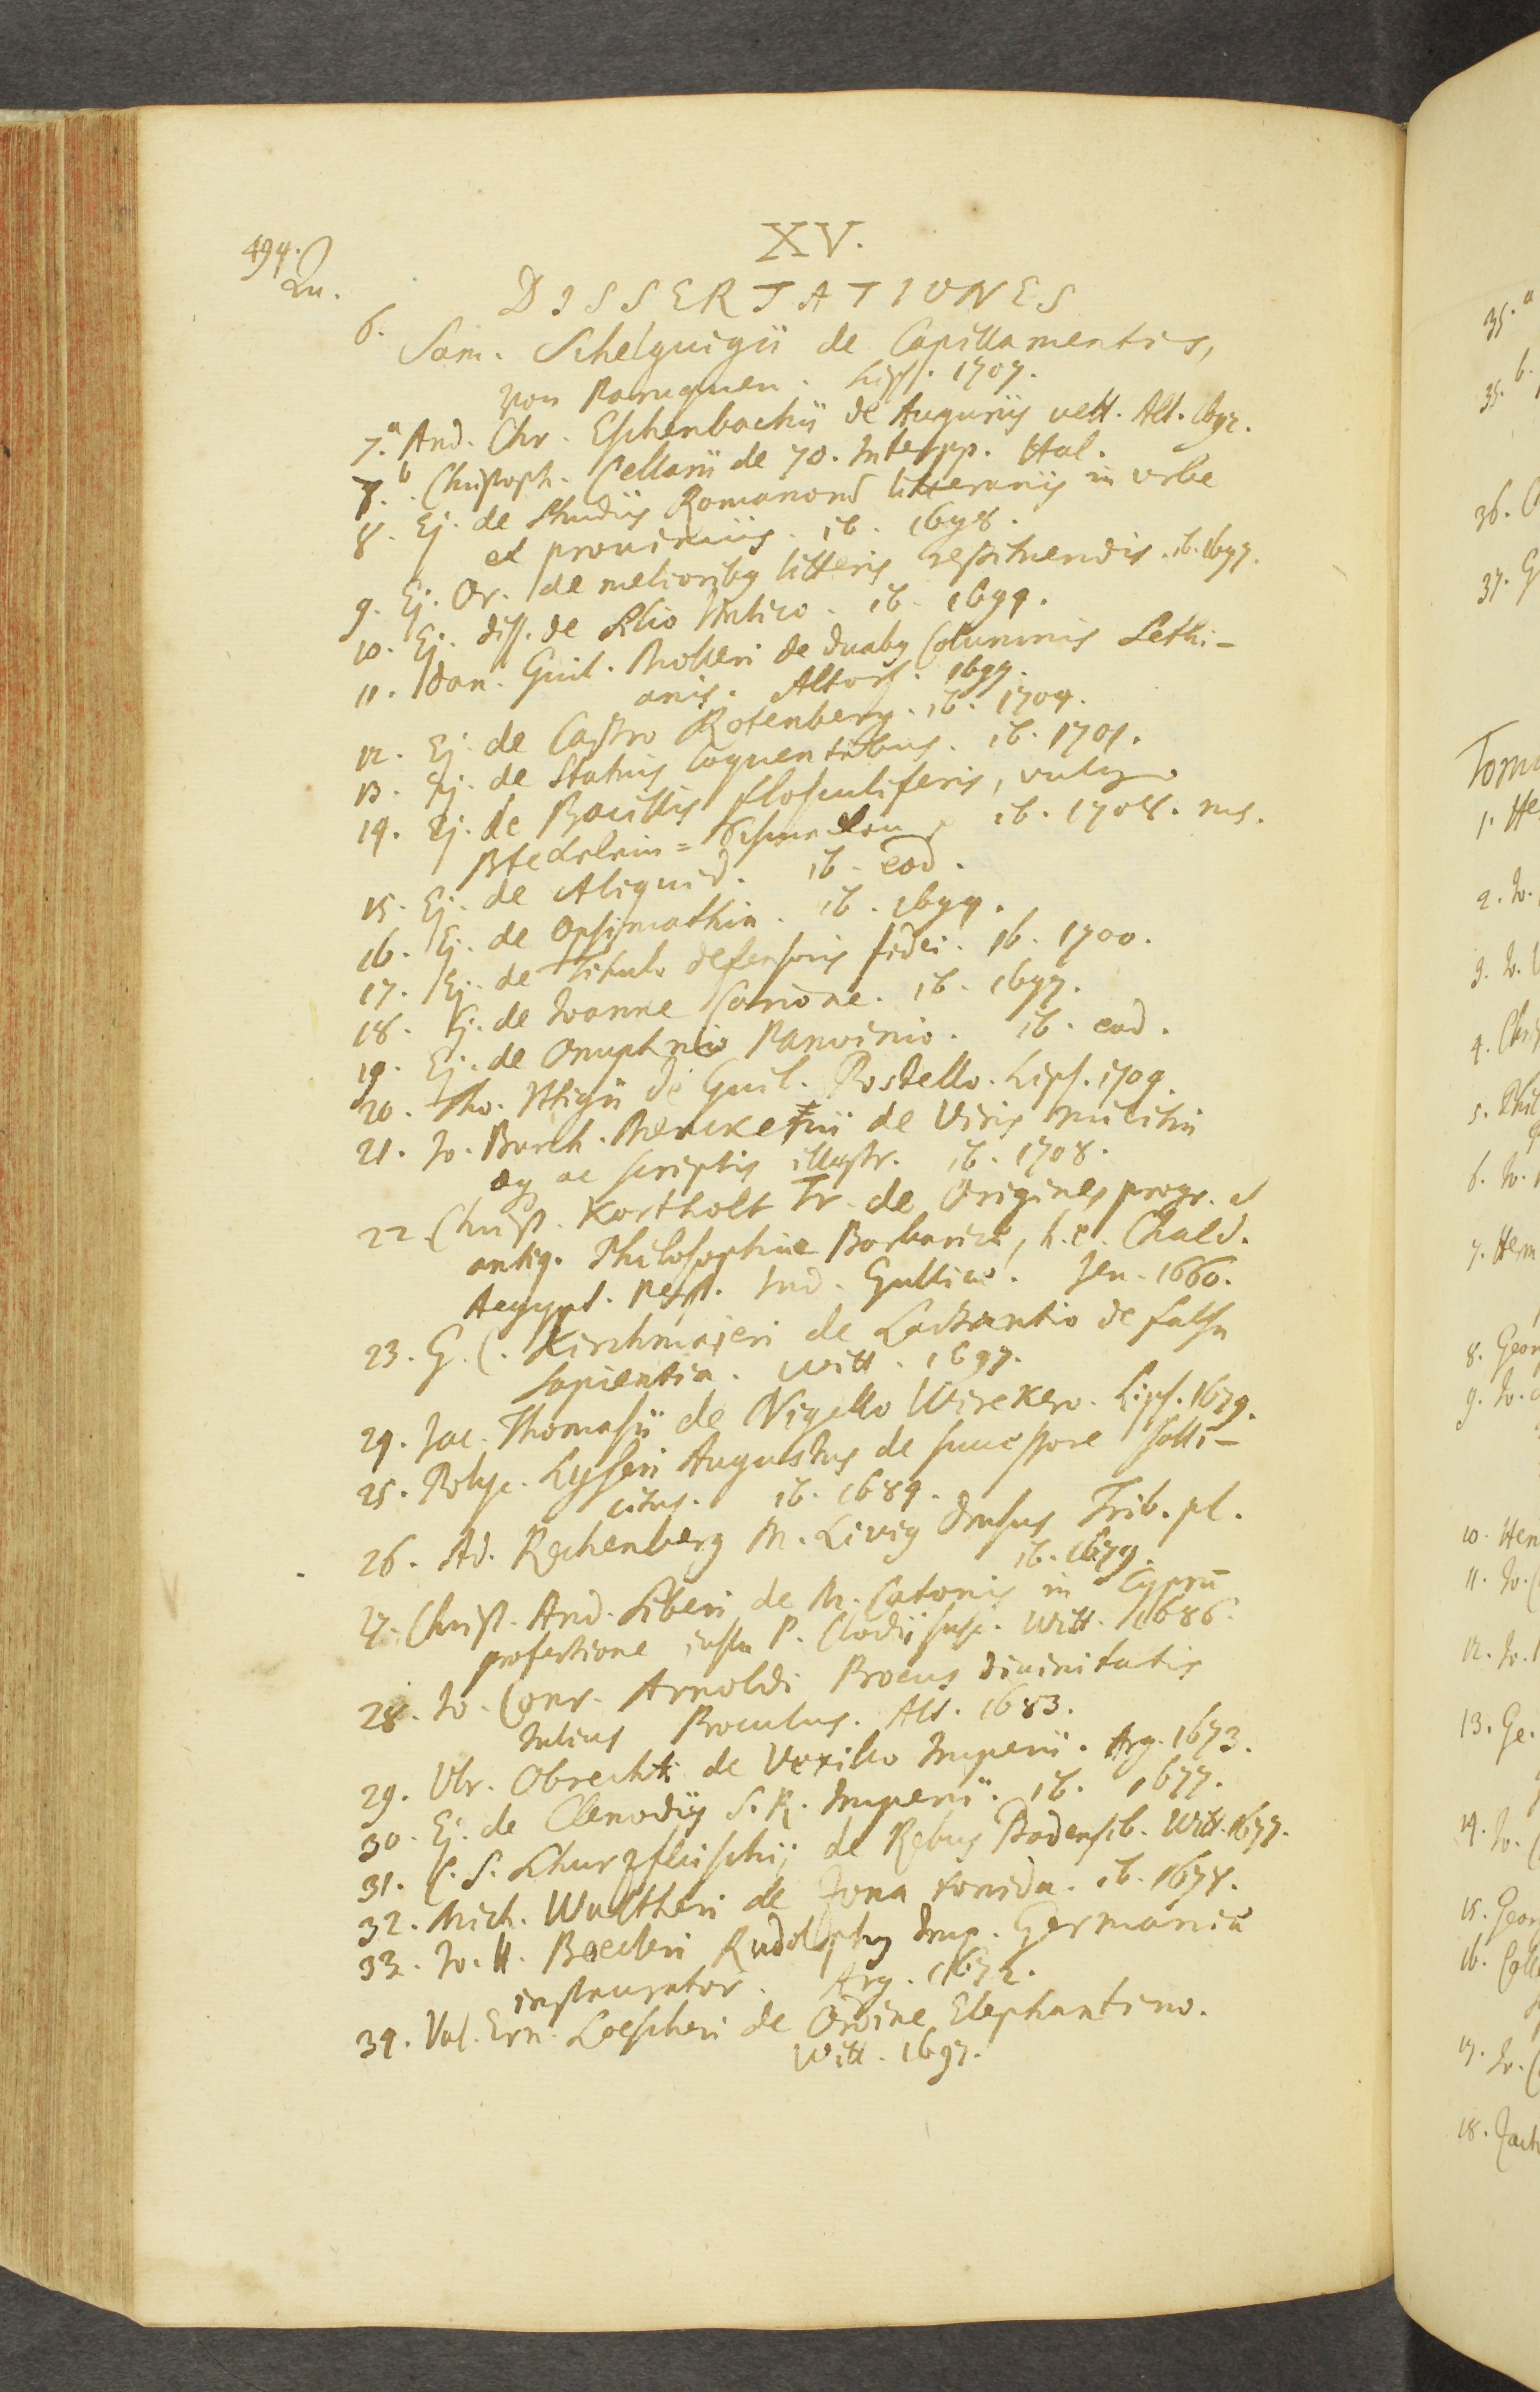 XV.
494.
Qu.
DISSERTATIONES
6. Sam. Schelguigii de Capillamentis,
von Paruquen. Lips. 1707.
7.a And. Chr. Eschenbachii de Auguriis vett. Alt. 1692.
7.b Christoph. Cellarii de 70. Interpp. Hal.
8. Ej. de Studiis Romanorum litterariis in vrbe
et prouinciis. ib. 1698.
9. Ej. Or. de melioribus litteris restituendis. ib. 1697.
10. Ej. diss. de Silio Italico. ib. 1699.
11. Dan. Guil. Molleri de duabus Columnis Sethi-
anis. Altorf. 1697.
12. Ej. de Castro Rotenberg. ib. 1704.
13. Ej. de Statuis loquentibus. ib. 1701.
14. Ej. de Bacillis flosculiferis, vulgo
ib. 1708. ms.
15. Ej. de Aliquid. ib. eod.
16. Ej. de Opsimathia. ib. 1699.
17. Ej. de Titulo defensoris fidei. ib. 1700.
18. Ej. de Ioanne Carione. ib. 1697.
19. Ej. de Onuphrio Panvinio. ib. eod.
20. Tho. Ittigii de Guil. Postello. Lips. 1704.
21. Io. Burch. Menckenii de Viris militia
aeq ac scriptis illustr. ib. 1708.
22. Christ. Kortholt Tr. de Origine, progr. et
antiq. Philosophiae Barbaricae, h. e. Chald.
Aegypt. Pers. Ind. Gallicae. Jen. 1660.
23. G. C. Kirchmajeri de Lactantio de falsa
sapientia. Witt. 1697.
24. Jac. Thomasii de Nigello Wirekero. Lips. 1679.
25. Polyc. Lyseri Augustus de successore solli-
citus. ib. 1689.
26. Ad. Rechenberg M. Livius Drusus Trib. pl.
ib. 1679.
27. Christ. And. Siberi de M. Catonis in Cyprum
profectione iussu P. Clodii susc. Witt. 1686.
28. Io. Conr. Arnoldi Procus diuinitatis
Iulius Proculus. Alt. 1683.
29. Vlr. Obrechti de Vexillo Imperii. Arg. 1673.
30. Ej. de Clenodiis S. R. Imperii. ib. 1677.
31. C. S. Schurzfleischij de Rebus Badensib. Witt. 1677.
32. Mich. Waltheri de Zona torrida. ib. 1678.
33. Io. H. Boecleri Rudolphus Imp. Germaniae
instaurator. Arg. 1672.
34. Val. Ern. Loescheri de Ordine Elephantino.
Witt. 1697.
35.a
35.b
36.
37. G
Tom
1. He
2. Io.
3. Io.
4. Chr
5. Phil
6. Io.
7. Herm
8. Geor
9. Io.
10. Hen
11. Io. C
12. Io.
13. Ge.
14. Io.
15. Geor
16. Coll
17. Io.
18. Jac